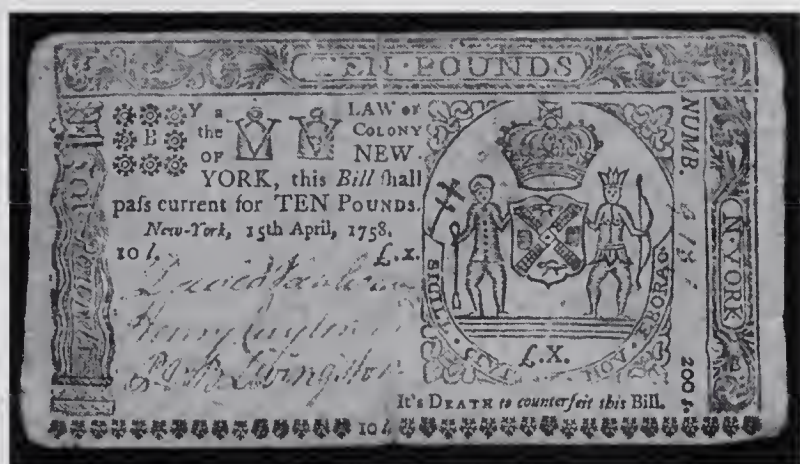 TEN·POUNDS
BY a LAW OF
the COLONY
OF NEW-
YORK, this Bill ſhall
paſs current for TEN POUNDS.
New-York, 15th April, 1758.
10 l. £.X.
Henry Cuyler
Livingston
SIGILL· EBORAC
£.X.
NUMB.
N·YORK
200 s.
It's DEATH to counterfeit this Bill.
10 l.